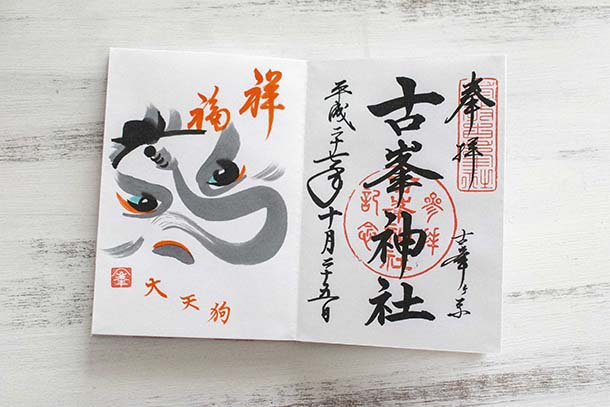 奉拝
古峯ヶ原
古峯神社
参拝記念
平成二十七年十月二十五日
祥福
大天狗